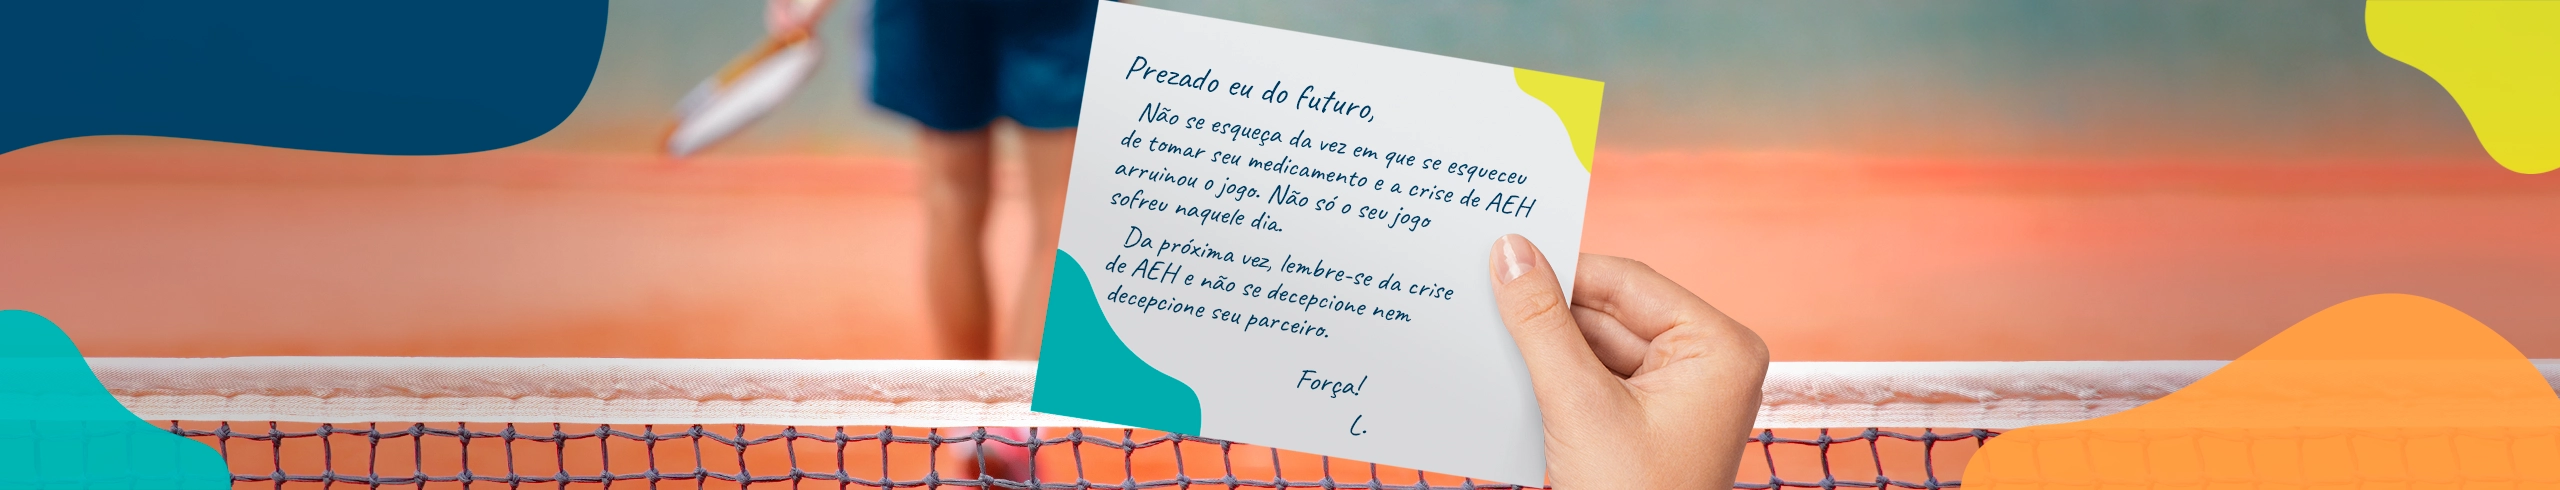 Prezado eu do futuro,
Não se esqueça da vez em que se esqueceu
de tomar seu medicamento e a crise de AEH
arruinou o jogo. Não só o seu jogo
sofreu naquele dia.
Da próxima vez, lembre-se da crise
de AEH e não se decepcione nem
decepcione seu parceiro.
Força!
L.